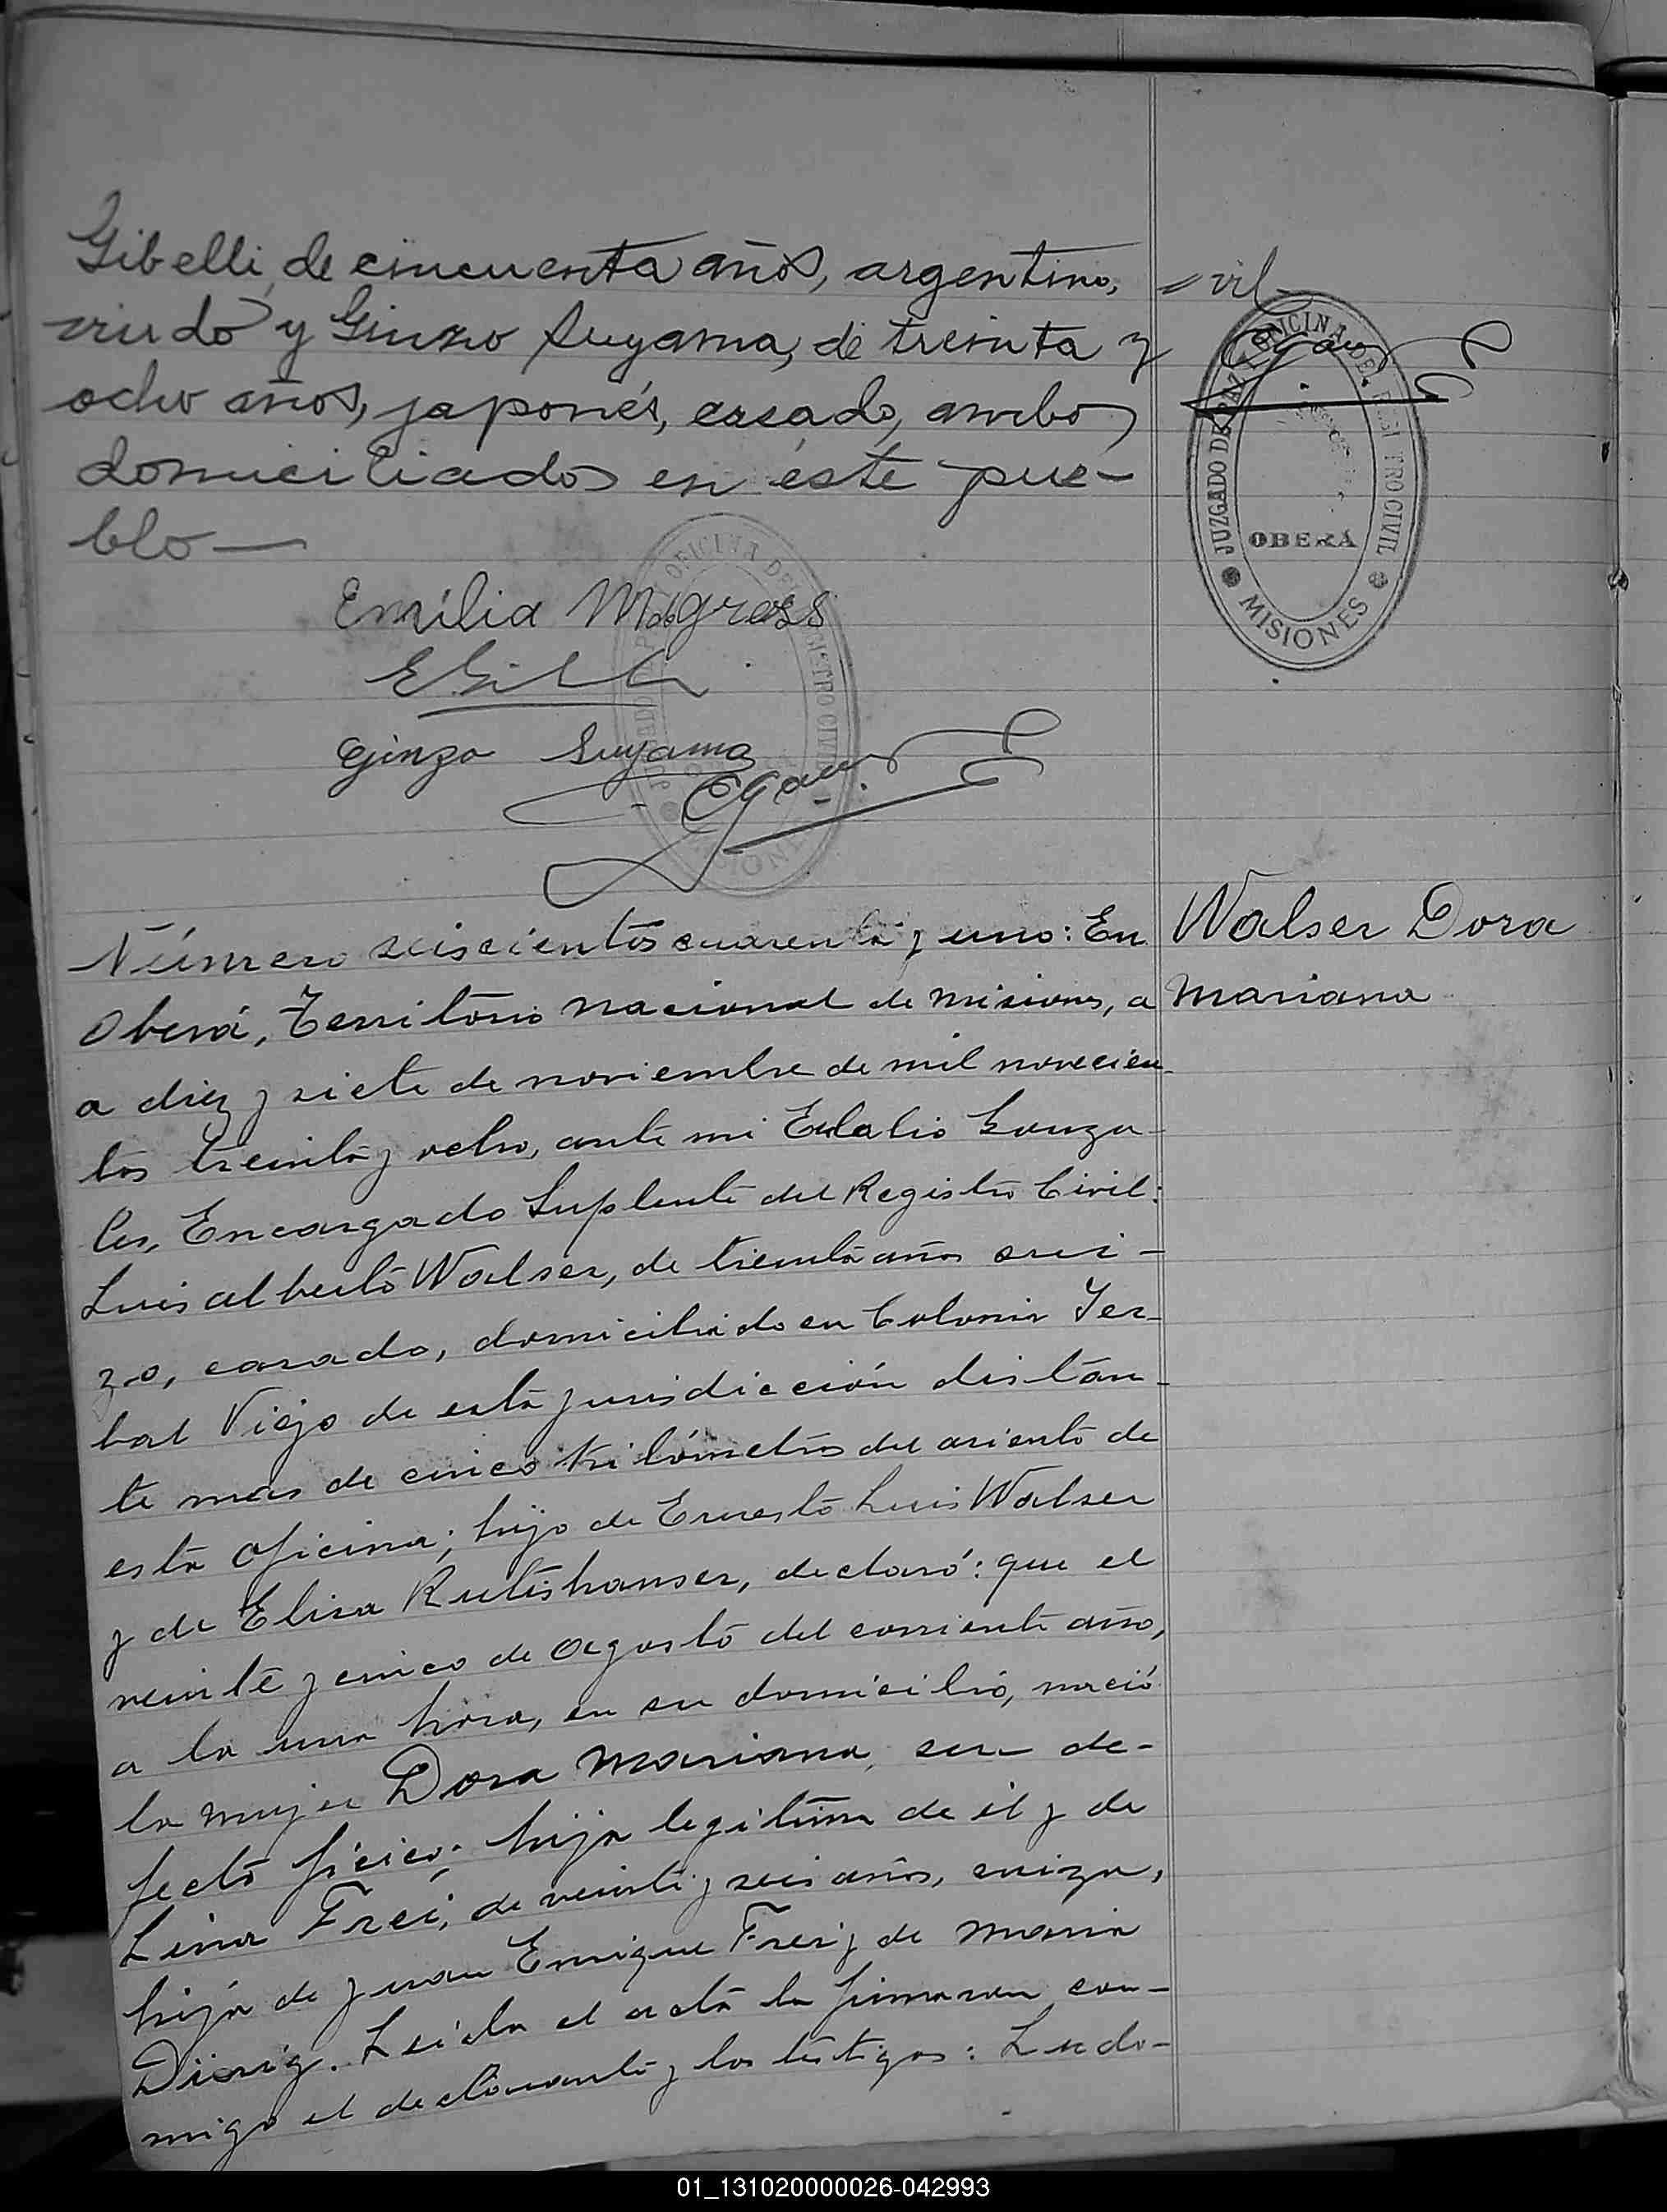 Gibelli, de cincuenta años, argentino,
viudo y Ginzo Suyama, de treinta y
ocho años, japonés, casado, ambos
domiciliados en éste pue-
blo —
= vil
JUZGADO DE PAZ Y OFICINA DEL REGISTRO CIVIL
OBERÁ
MISIONES
Emilia
Ginzo Suyama
Número seiscientos cuarenta y uno: En
Oberá, Territorio Nacional de Misiones, a
a diez y siete de noviembre de mil novecien-
tos treinta y ocho, ante mi Eulalio Gonza-
les, Encargado Suplente del Registro Civil:
Luis Alberto Walser, de treinta años sui-
zo, casado, domiciliado en Colonia Yer-
bal Viejo de esta jurisdicción distan-
te mas de cinco kilómetros del asiento de
esta oficina; hijo de Ernesto Luis Walser
y de Elisa Rutishauser, declaró: que el
veinte y cinco de agosto del corriente año,
a la una hora, en su domicilio, nació
la mujer Dora Mariana, sin de-
fecto físico; hija legítima de él y de
Lina Frei, de veinti y seis años, suiza,
hija de Juan Enrique Frei y de Maria
Leída el acta la firmaron con-
migo el declarante y los testigos: Ludo-
Walser Dora
Mariana
01_131020000026-042993